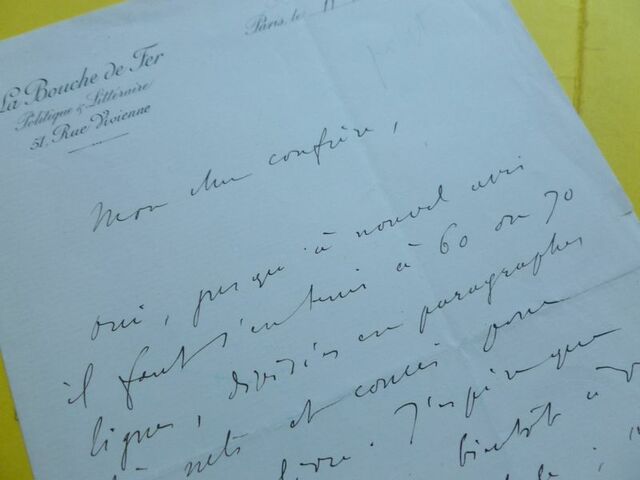 La Bouche de Fer
Politique & Littéraire
51, Rue Vivienne
Paris, le 11
Mon cher confrère,
Oui, jusqu'à nouvel avis
il faut s'en tenir à 60 ou 70
lignes, divisées en paragraphes
nets et concis pour
J'espère que
bientôt à